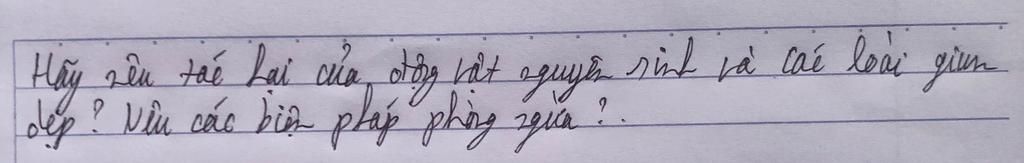 Hãy nêu tác hại của động vật nguyên sinh và các loài giun
dẹp? Nêu các biện pháp phòng ngừa?.